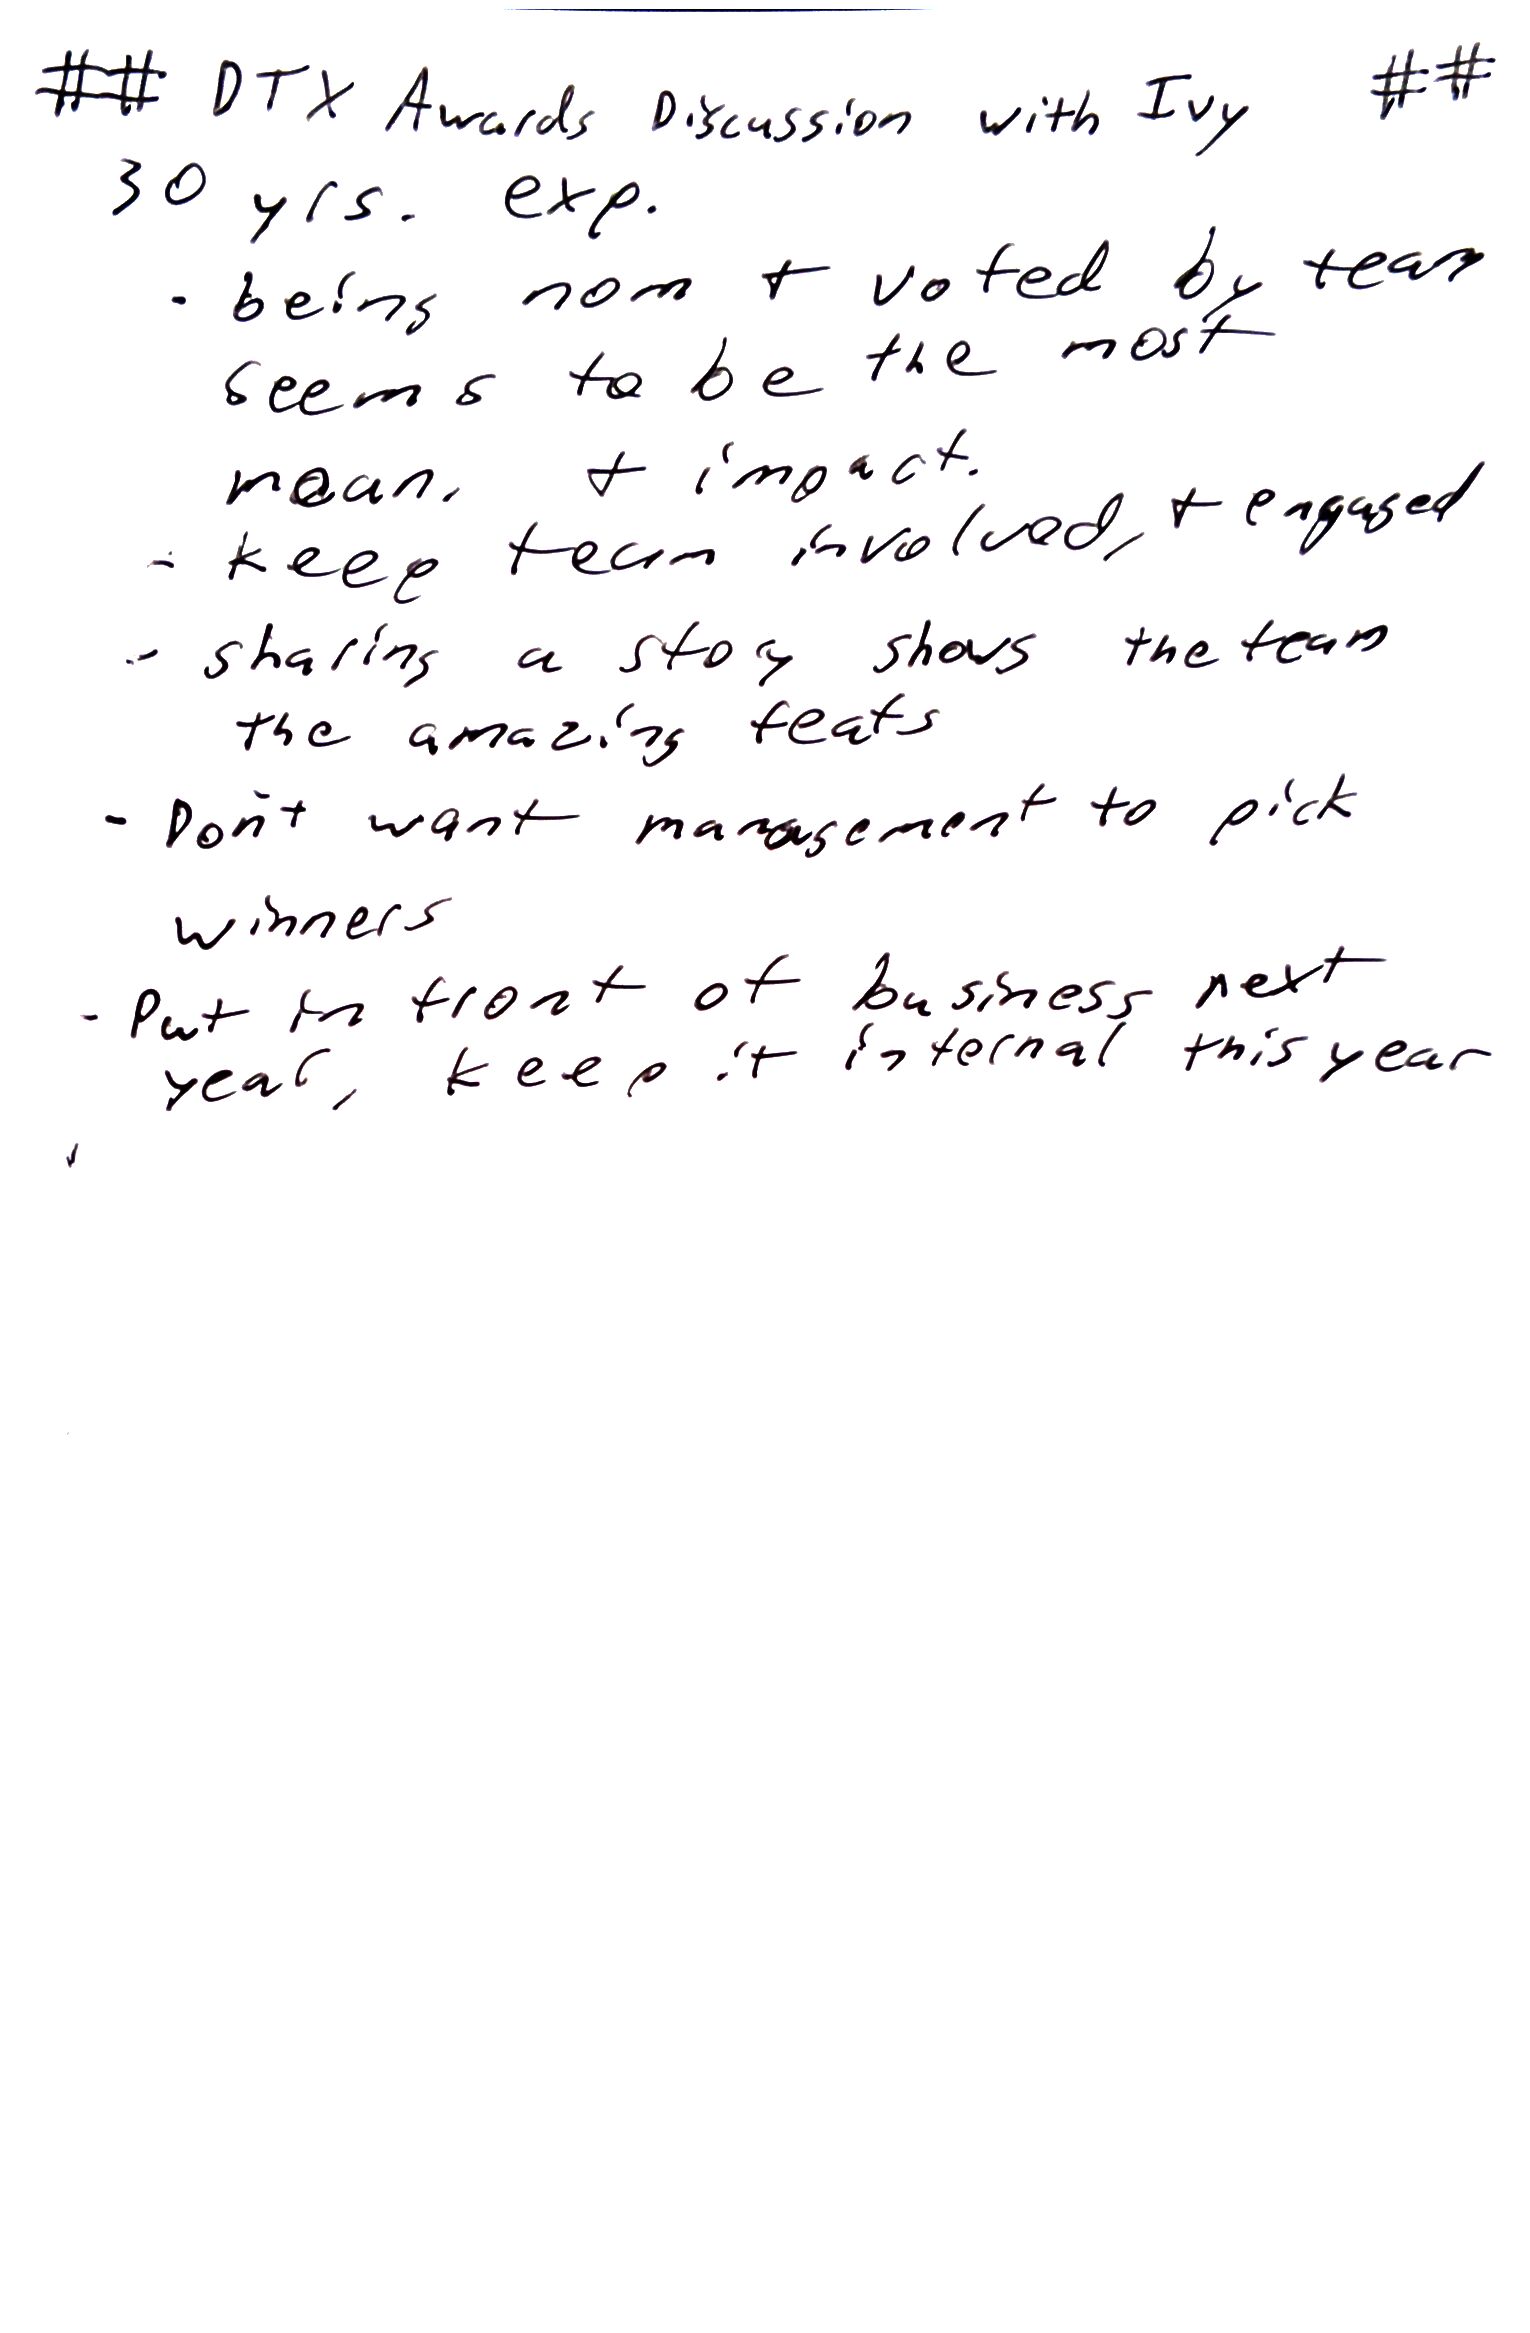 ## DTX Awards Discussion with Ivy ##
30 yrs. exp.
- being nom + voted by team
seems to be the most
mean. + impact.
- keep team involved, + engaged
- sharing a stoy shows the team
the amazing feats
- Don't want management to pick
winners
- Put in front of business next
year, keep it internal this year